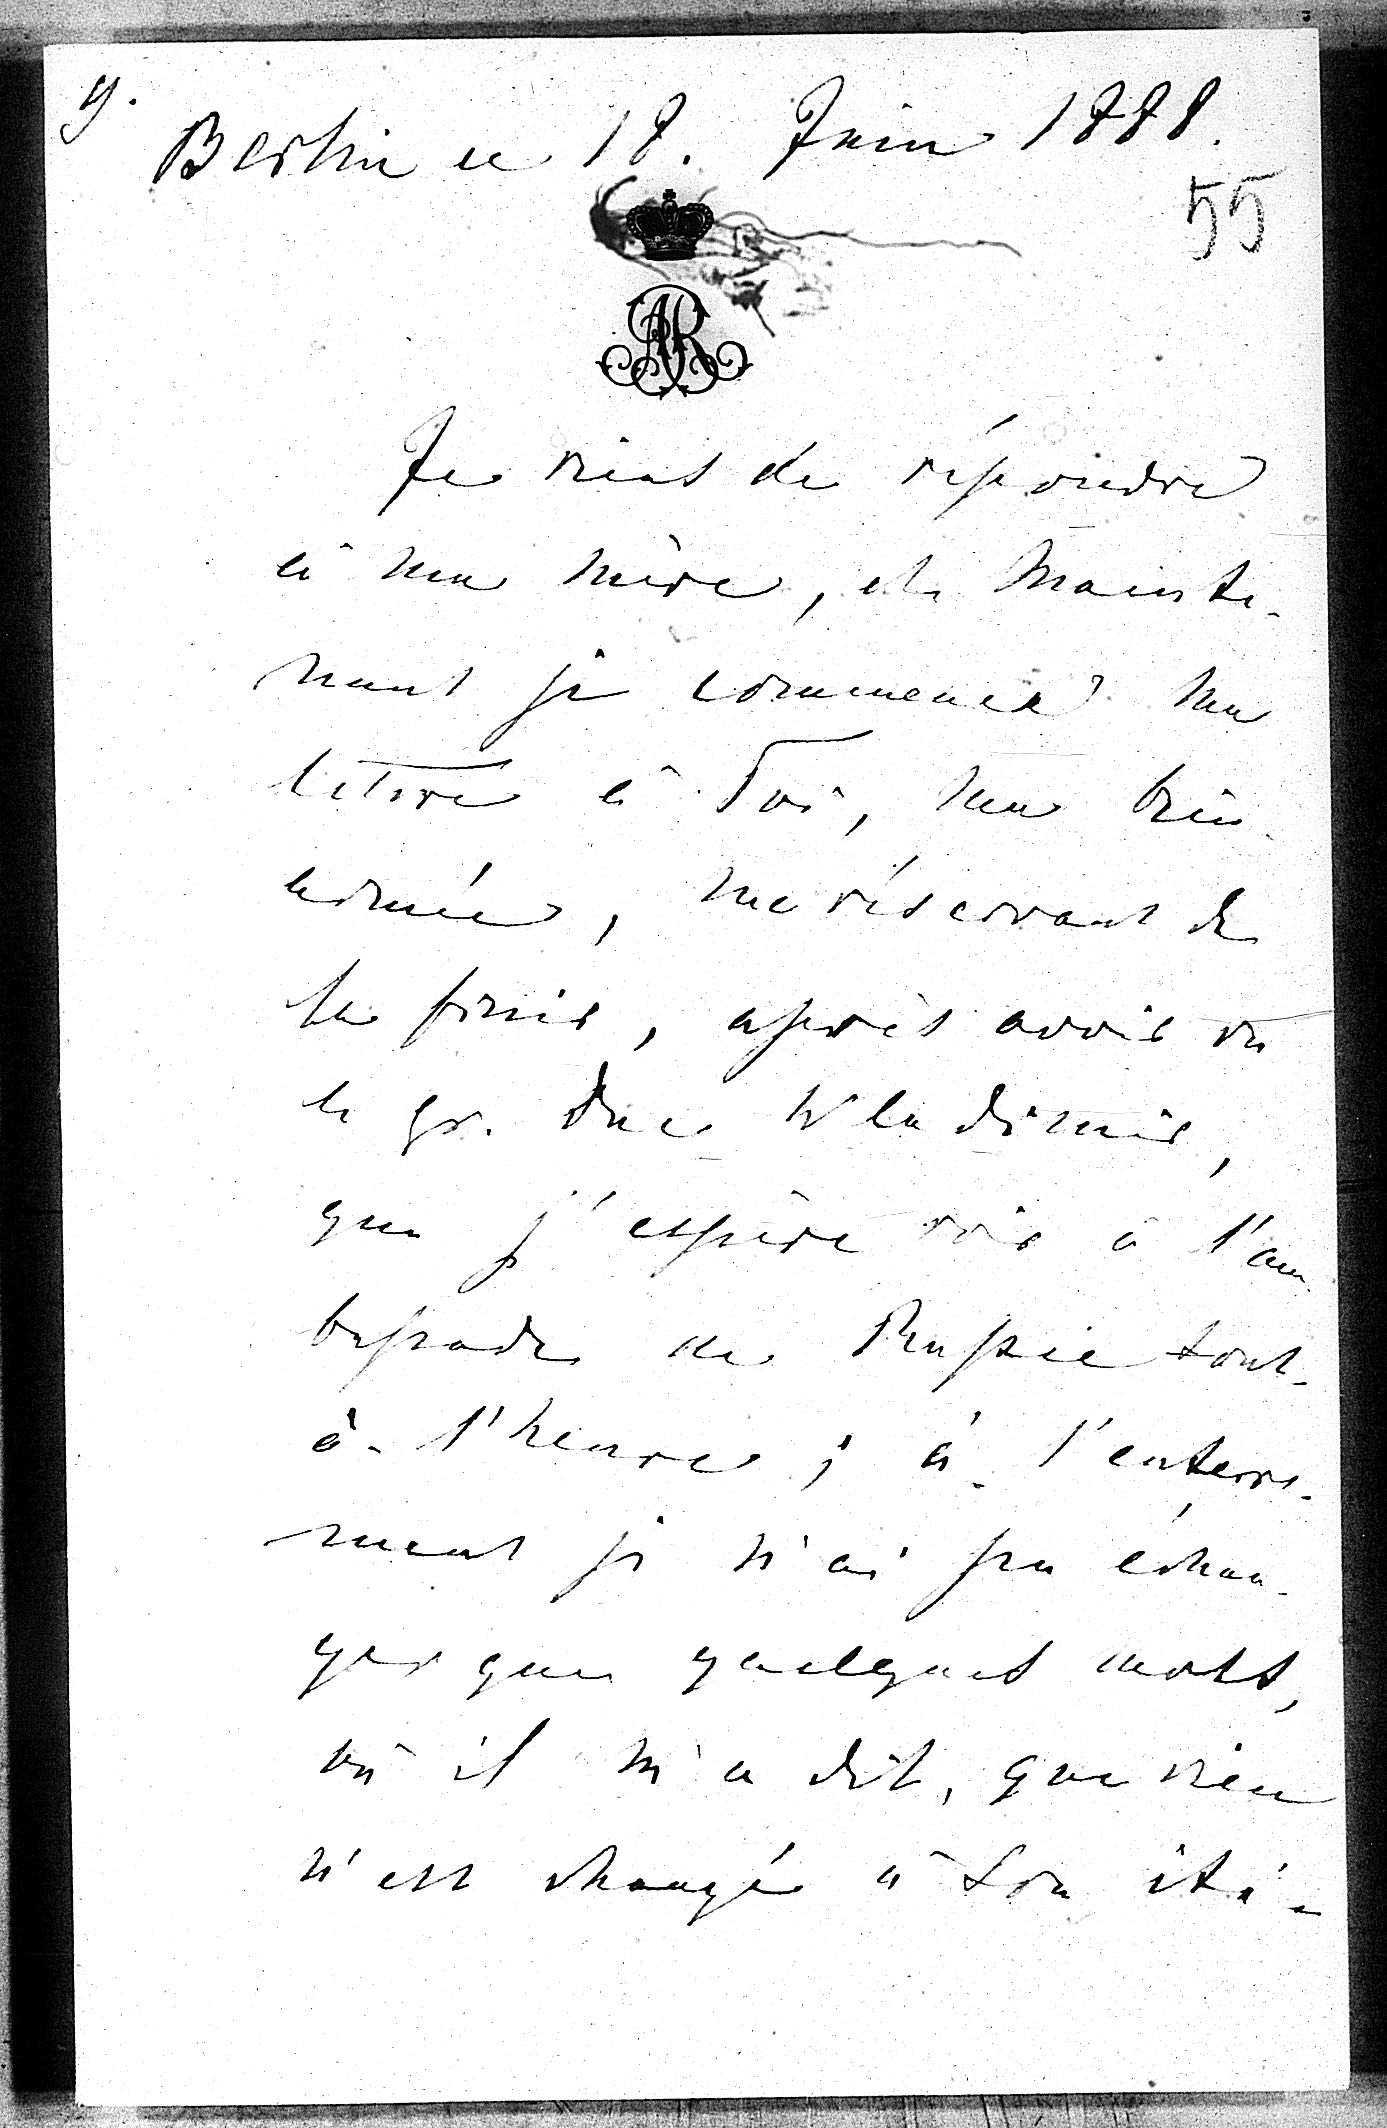 9.
Berlin ce 18. Juin 1888.
55
AR
Je viens de répondre
à ma mère, et mainte-
nant je commence ma
lettre à Toi, ma bien
aimée, me réservant de
la finir, après avoir vu
le gr. Duc Wladimir,
que j'espère voir à l'am
bassade de Russie tout-
à-l'heure; à l'enterre-
ment je n'ai pu échan-
ger que quelques mots,
où il m'a dit, que rien
n'est changé à son iti-